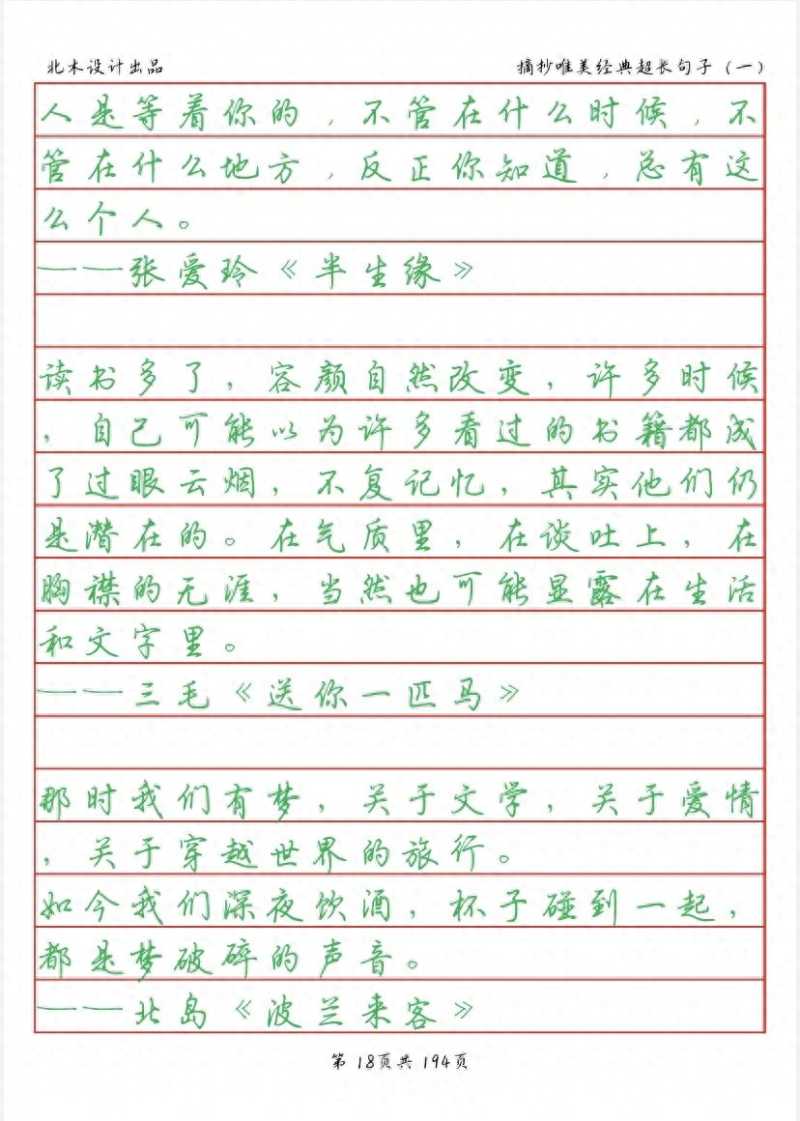 北木设计出品
摘抄唯美经典超长句子（一）
人是等着你的，不管在什么时候，不
管在什么地方，反正你知道，总有这
么个人。
——张爱玲《半生缘》
读书多了，容颜自然改变，许多时候
，自己可能以为许多看过的书籍都成
了过眼云烟，不复记忆，其实他们仍
是潜在的。在气质里，在谈吐上，在
胸襟的无涯，当然也可能显露在生活
和文字里。
——三毛《送你一匹马》
那时我们有梦，关于文学，关于爱情
，关于穿越世界的旅行。
如今我们深夜饮酒，杯子碰到一起，
都是梦破碎的声音。
——北岛《波兰来客》
第 18页共 194页